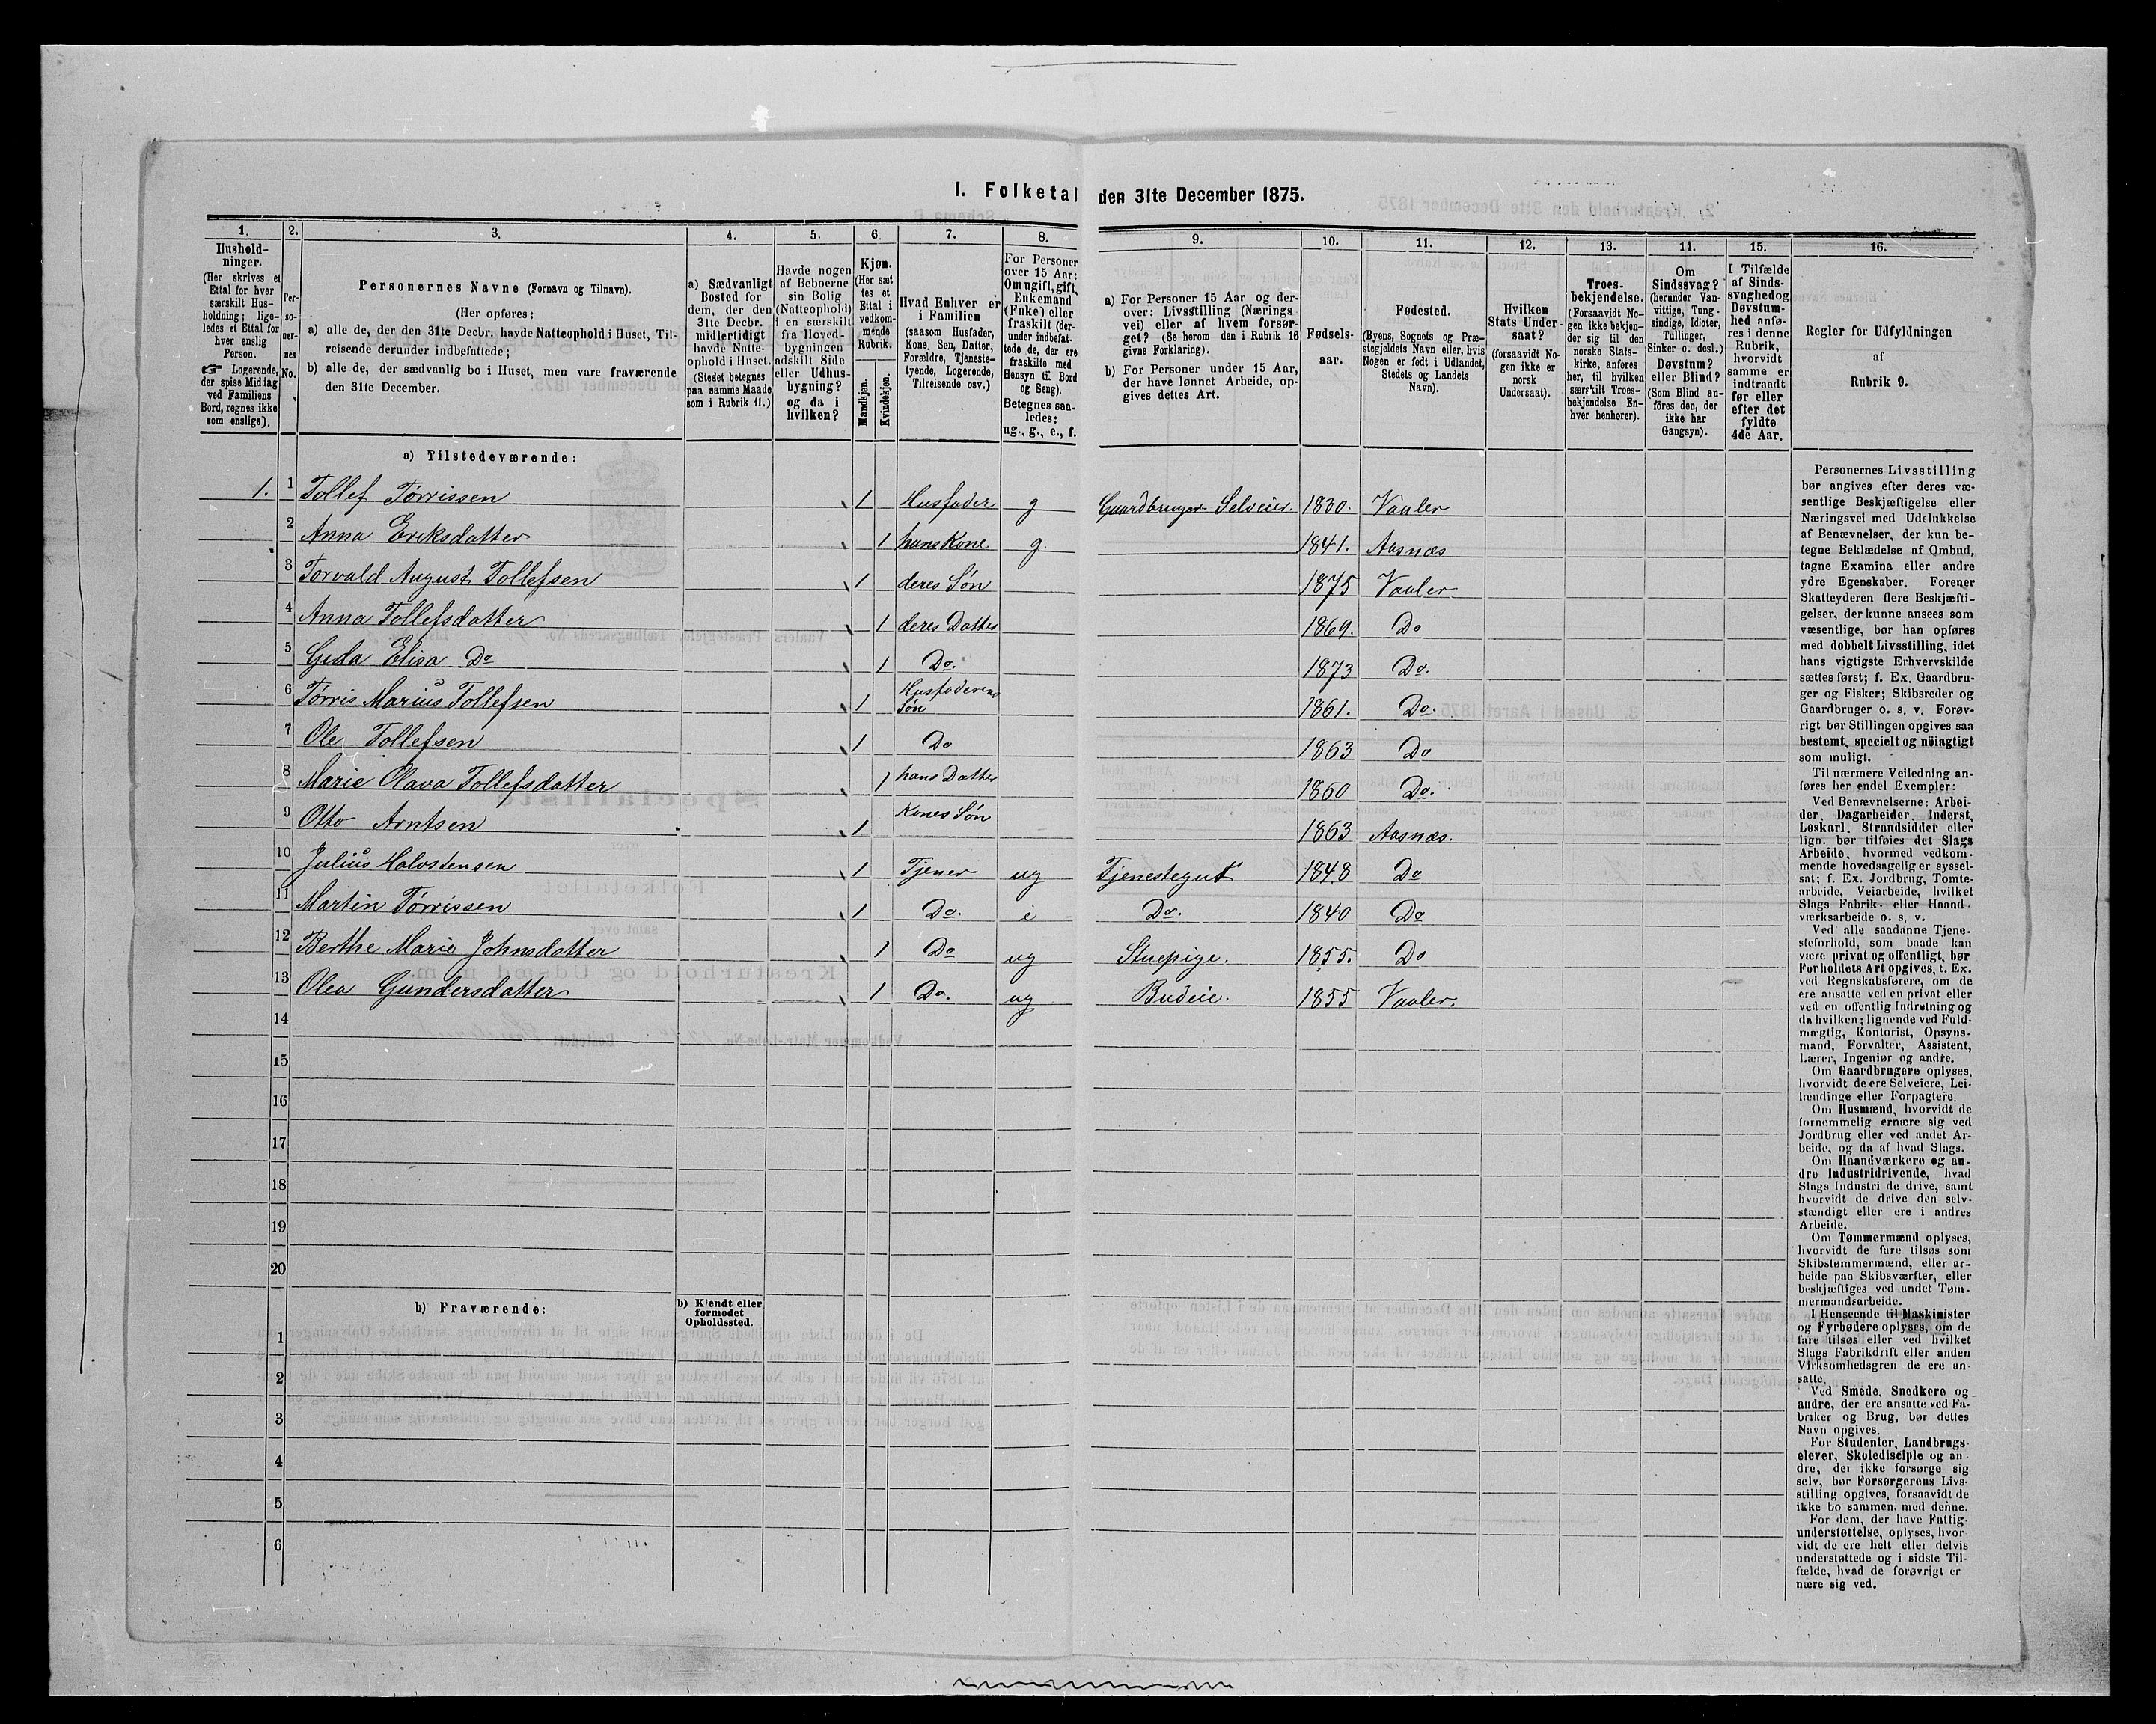 I. Folketal den 31te December 1875.
1. 2. 3. 4. 5. 6. 7. 8. 9. 10. 11. 12. 13. 14. 15. 16.
Hushold-
ninger.
(Her skrives et
Ettal for hver
særskilt Hus-
holdning; lige-
ledes et Ettal for
hver enslig
Person.
☞ Logerende,
der spise Middag
ved Familiens
Bord, regnes ikke
som enslige).
Per-
so-
ner-
nes
No.
Personernes Navne (Fornavn og Tilnavn).
(Her opføres:
a) alle de, der den 31te Decbr. havde Natteophold i Huset, Til-
reisende derunder indbefattede;
b) alle de, der sædvanlig bo i Huset, men vare fraværende
den 31te December.
a) Sædvanligt
Bosted for
dem, der den
31te Decbr.
midlertidigt
havde Natte-
ophold i Huset.
(Stedet betegnes
paa samme Maade
som i Rubrik 11.)
Havde nogen
af Beboerne
sin Bolig
(Natteophold)
i en særskilt
fra Hoved-
bygningen
adskilt Side
eller Udhus-
bygning?
og da i
hvilken?
Kjøn.
(Her sæt
tes et
Ettal i
vedkom-
mende
Rubrik.
Mandkjøn.
Kvindekjøn.
Hvad Enhver er
i Familien
(saasom Husfader,
Kone, Søn, Datter,
Forældre, Tjeneste-
tyende, Logerende,
Tilreisende osv.)
For Personer
over 15 Aar:
Om ugift, gift,
Enkemand
(Enke) eller
fraskilt (der-
under indbefat-
tede de, der ere
fraskilte med
Hensyn til Bord
og Seng).
Betegnes saa-
ledes:
ug., g., e., f.
a) For Personer 15 Aar og der-
over: Livsstilling (Nærings
vei) eller af hvem forsør-
get? (Se herom den i Rubrik 16
givne Forklaring).
b) For Personer under 15 Aar,
der have lønnet Arbeide, op-
gives dettes Art.
Fødsels-
aar.
Fødested.
(Byens, Sognets og Præ-
stegjeldets Navn eller, hvis
Nogen er født i Udlandet,
Stedets og Landets
Navn).
Hvilken
Stats Under-
saat?
(forsaavidt No-
gen ikke er
norsk
Undersaat).
Troes-
bekjendelse.
(Forsaavidt No-
gen ikke bekjen-
der sig til den
norske Stats-
kirke, anføres
her, til hvilken
særskilt Troes-
bekjendelse En-
hver henhører).
Om
Sindssvag?
(herunder Van-
vittige, Tung-
sindige, Idioter,
Tullinger,
Sinker o. desl.)
Døvstum?
eller Blind?
(Som Blind an-
föres den, der
ikke har
Gangsyn).
I Tilfælde
af Sinds-
svaghed og
Døvstum-
hed anfø-
res i denne
Rubrik,
hvorvidt
samme er
indtraadt
før eller
efter det
fyldte
4de Aar.
Regler for Udfyldningen
af
Rubrik 9.
a) Tilstedeværende:
1. 1 Tollef Tørrissen 1 Husfader g Gaardbruger Selveier. 1830. Vaaler
2 Anna Eriksdatter 1 hans Kone g. 1841. Aasnæs
3 Torvald August Tollefsen 1 deres Søn 1875 Vaaler
4 Anna Tollefsdatter 1 deres Datter 1869. Do
5 Elisa Do 1 Do. 1873 Do.
6 Tørris Marius Tollefsen 1 Husfaderens Søn 1861. Do.
7 Ole Tollefsen 1 Do 1863 Do
8 Marie Olava Tollefsdatter 1 hans Datter 1860 Do.
9 Otto Arntsen 1 Kones Søn 1863 Aasnæs.
10 Julius Halvstensen 1 Tjener ug Tjenestegut 1848 Do
11 Martin Tørrissen 1 Do. e Do. 1840 Do
12 Berthe Marie Johnsdatter 1 Do ug Stuepige. 1855. Do
13 Olea Gundersdatter 1 Do. ug Budeie. 1855 Vaaler.
14
15
16
17
18
19
20
b) Fraværende:
b) Kjendt eller
formodet
Opholdssted.
1
2
3
4
5
6
Personernes Livsstilling
bør angives efter deres væ-
sentlige Beskjæftigelse eller
Næringsvei med Udelukkelse
af Benævnelser, der kun be-
tegne Beklædelse af Ombud,
tagne Examina eller andre
ydre Egenskaber. Forener
Skatteyderen flere Beskjæfti-
gelser, der kunne ansees som
væsentlige, bør han opføres
med dobbelt Livsstilling, idet
hans vigtigste Erhvervskilde
sættes først; f. Ex. Gaardbru-
ger og Fisker; Skibsreder og
Gaardbruger o. s. v. Forøv-
rigt bør Stillingen opgives saa
bestemt, specielt og nöiagtigt
som muligt.
Til nærmere Veiledning an-
føres her endel Exempler:
Ved Benævnelserne: Arbei-
der, Dagarbeider, Inderst,
Løskarl, Strandsidder eller
lign. bør tilføies det Slags
Arbeide, hvormed vedkom-
mende hovedsagelig er syssel-
sat; f. Ex. Jordbrug, Tomte-
arbeide, Veiarbeide, hvilket
Slags Fabrik- eller Haand-
værksarbeide o. s. v.
Ved alle saadanne Tjene-
steforhold, som baade kan
være privat og offentligt, bør
Forholdets Art opgives, t. Ex.
ved Regnskabsførere, om de
ere ansatte ved en privat eller
ved en offentlig Indretning og
da hvilken; lignende ved Fuld-
mægtig, Kontorist, Opsyns-
mand, Forvalter, Assistent,
Lærer, Ingeniør og andre.
Om Gaardbrugere oplyses,
hvorvidt de ere Selveiere, Lei-
lændinge eller Forpagtere.
Om Husmænd, hvorvidt de
fornemmelig ernære sig ved
Jordbrug eller ved andet Ar-
beide, og da af hvad Slags.
Om Haandværkere og an-
dre Industridrivende, hvad
Slags Industri de drive, samt
hvorvidt de drive den selv-
stændigt eller ere i andres
Arbeide.
Om Tømmermænd oplyses,
hvorvidt de fare tilsøs som
Skibstømmermænd, eller ar-
beide paa Skibsværfter, eller
beskjæftiges ved andet Tøm-
mermandsarbeide.
I Henseende til Maskinister
og Fyrbødere oplyses, om de
fare tilsøs eller ved hvilket
Slags Fabrikdrift eller anden
Virksomhedsgren de ere an-
satte.
Ved Smede, Snedkere og
andre, der ere ansatte ved Fa-
briker og Brug, bør dettes
Navn opgives.
For Studenter, Landbrugs-
elever, Skoledisciple og an-
dre, der ikke forsørge sig
selv, bør Forsørgerens Livs-
stilling opgives, forsaavidt de
ikke bo sammen med denne.
For dem, der have Fattig-
understøttelse, oplyses, hvor-
vidt de ere helt eller delvis
understøttede og i sidste Til-
fælde, hvad de forøvrigt er-
nære sig ved.